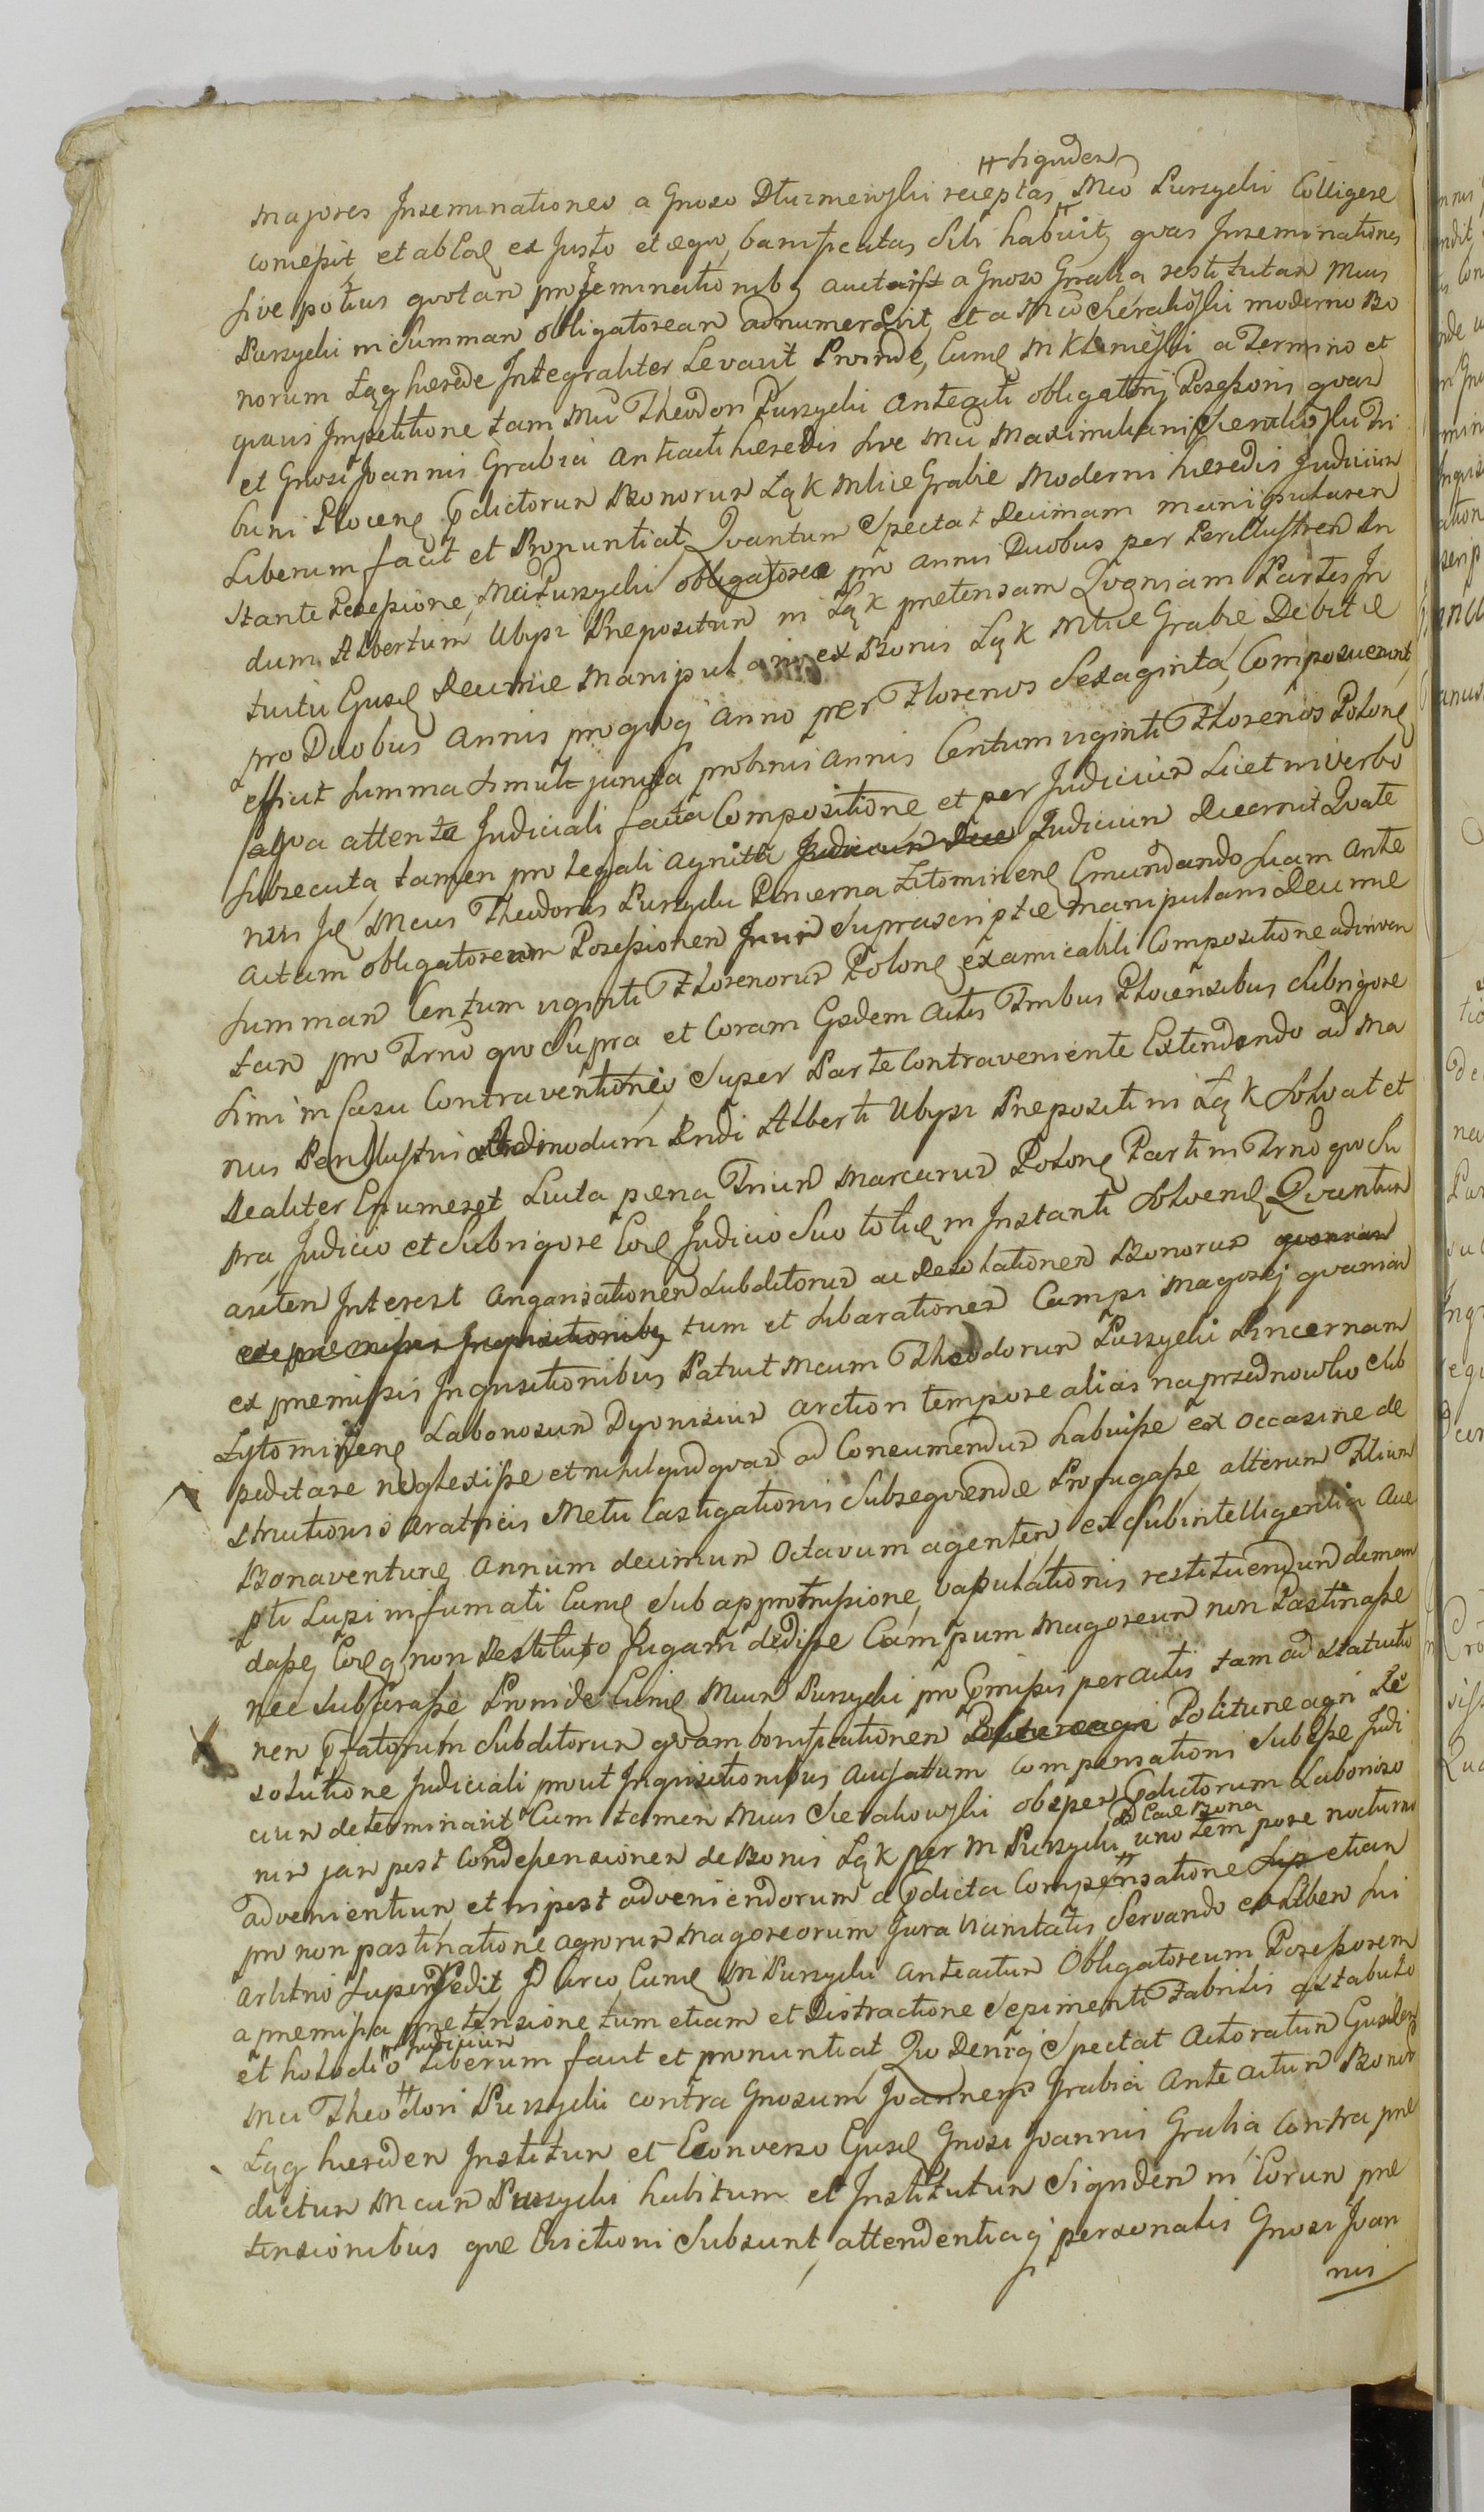 # Siquidem
majores Inseminationes a Gnoso Dłuzmiewski receptas # Mco Purzycki Colligere
concessit, et ab Eod ex Justo et æquo, bonificatas Sibi habuit, quas Inseminationes
sive potius quotam pro Seminationibq a Gnoso Grabia restitutam Mcus
Purzycki in Summam obligatoream adnumeravit, et a Mco Sierakowski moderno Bo
norum Łąg hærede Integraliter Levavit Proinde, eund M a Termino et
quavis Impetitione tam Mci Theodori Purzycki anteacti obligatorij Possessoris quam
et Gnosi Joannis Grabia anteacti hæredis sive Mci Maximiliani Sierakowski Tri
buni Plocen prædictorum Bonorum Łąk Mlice Grabie Moderni hæredis Judicium
Liberum facit et Pronuntiat, Quantum Spectat Decimam manipularem
stante Possessione, Mci Purzycki obligatorea pro annis Duobus per Perillustrem An
dum Albertum Ubysz Præpositum in Łąk prætensam Quoniam Partes In
tuitu Ejusd Decimæ Manipularis ex Bonis Łąk Mlice Grabie Debitæ
pro Duobus annis pro quoq anno per Florenos Sexaginta, Composuerunt,
efficit summa simul juncta pro binis annis Centum viginti Florenos Polon
salva attenta Judiciali facta Compositione, et per Judicium Licet in verbo
subsecuta, tamen pro legali agnita Judicium Decernit Quate
nus Mcus Theodorus Purzycki Pincerna Zitomirien Emundando suam ante
actam obligatoream Possessionem Suprascriptæ Manipularis Decimæ
summam Centum viginti Florenorum Polon ex amicabili Compositione adinven
tam pro Trno quo Supra et Coram Eisdem Actis Trribus Plocensibus Sub rigore
simi in Casu Contraventionis, Super Parte Contraveniente Extendendo ad ma
nus Perillustris Admodum Rndi Alberti Ubysz Præpositi in Łąk solvat et
Realiter Enumeret Luita pæna Trium Marcarum Polon Parti in Trno quo Su
pra Judicio et Sub rigore Eod Judicio Suo toties in Instanti Solvend, Quantum
autem Interest angarisationem Subditorum ac Desolationem Bonorum quoniam
ex præmissis Inquisitionibq tum et Libarationem Campi magorej quoniam
ex præmissis Inquisitionibus Patuit Mcum Theodorum Purzycki Pincernam
Zytomirien Laboriosum Dyonisium arction tempore alias na przednowku Sub
peditare neglexisse et nihil quidquam ad Consumendum habuisse ex occasine de
structionis aratricis Metu Castigationis Subsequendæ Profugasse, alterum Filium
Bonaventuræ annum decimum Octavum agentem, ex Subintelligentia
pti Lupi infumati Eund Sub appromissione vapulationis restituendum deman
dasse, Eoq non Restituto fugam dedisse Campum Magoreum non Pastinasse
nec Subarasse Proinde Eund Mcum Purzycki pro præmissis peractis tam ad Statuitio
nem præfatorum Subditorum quam bonificationem Politure agri Politure agri Re
solutione Judiciali prout Inquisitionibus Compensationi Subesse Judi
cium determinavit Cum tamen Mcus Sierakowski ob spem prædictorum Laborioso
rum jam post Condepensionem de Bonis Łąk per M Purzycki # ad Ead Bona uno tempore nocturno
advenientium, et in post adveniendorum a prædicta Compensatione Sup etiam
pro non pastinatione agrorum magoreorum Jura Vicinitatis Servando ex Liben sui
arbitrio Supersedit, Id circo, Eund M Purzycki anteactum Obligatoreum Possessorem
a præmissa prætensione tum etiam et Distractione Sepimenti Fabrilis a stabulo
et holodio # Judicium Liberum facit et pronuntiat, Quo Deniq Spectat actoratum Ejusdem
Mci Theodori Purzycki contra Gnosum Joannem Grabia Ante actum Bonor
Łąg hæredem Institum et Econverso Ejusd Gnosi Joannis Grabia contra præ
dictum Mcum Purzycki habitum et Institutum Siquidem in Eorum præ
tensionibus quæ Evictioni Subsunt, attendentiaq personalis Gnosi Joan
nis